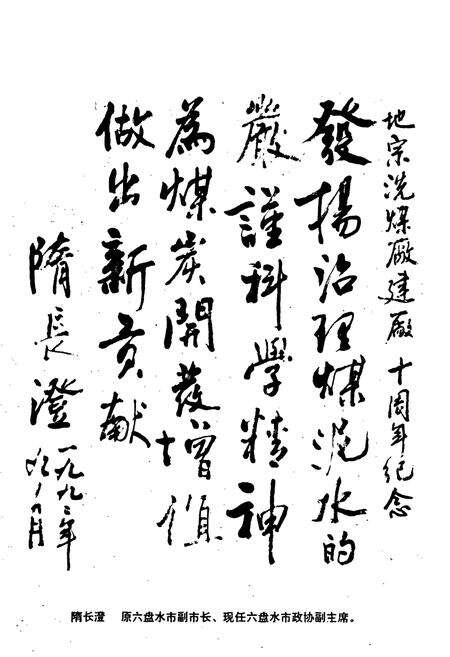 地宗洗煤厰建厰十周年纪念
發揚治理煤泥水的
嚴謹科學精神
為煤炭開發增值
做出新贡献
隋長澄
一九九二年
月
隋长澄 原六盘水市副市长、现任六盘水市政协副主席。